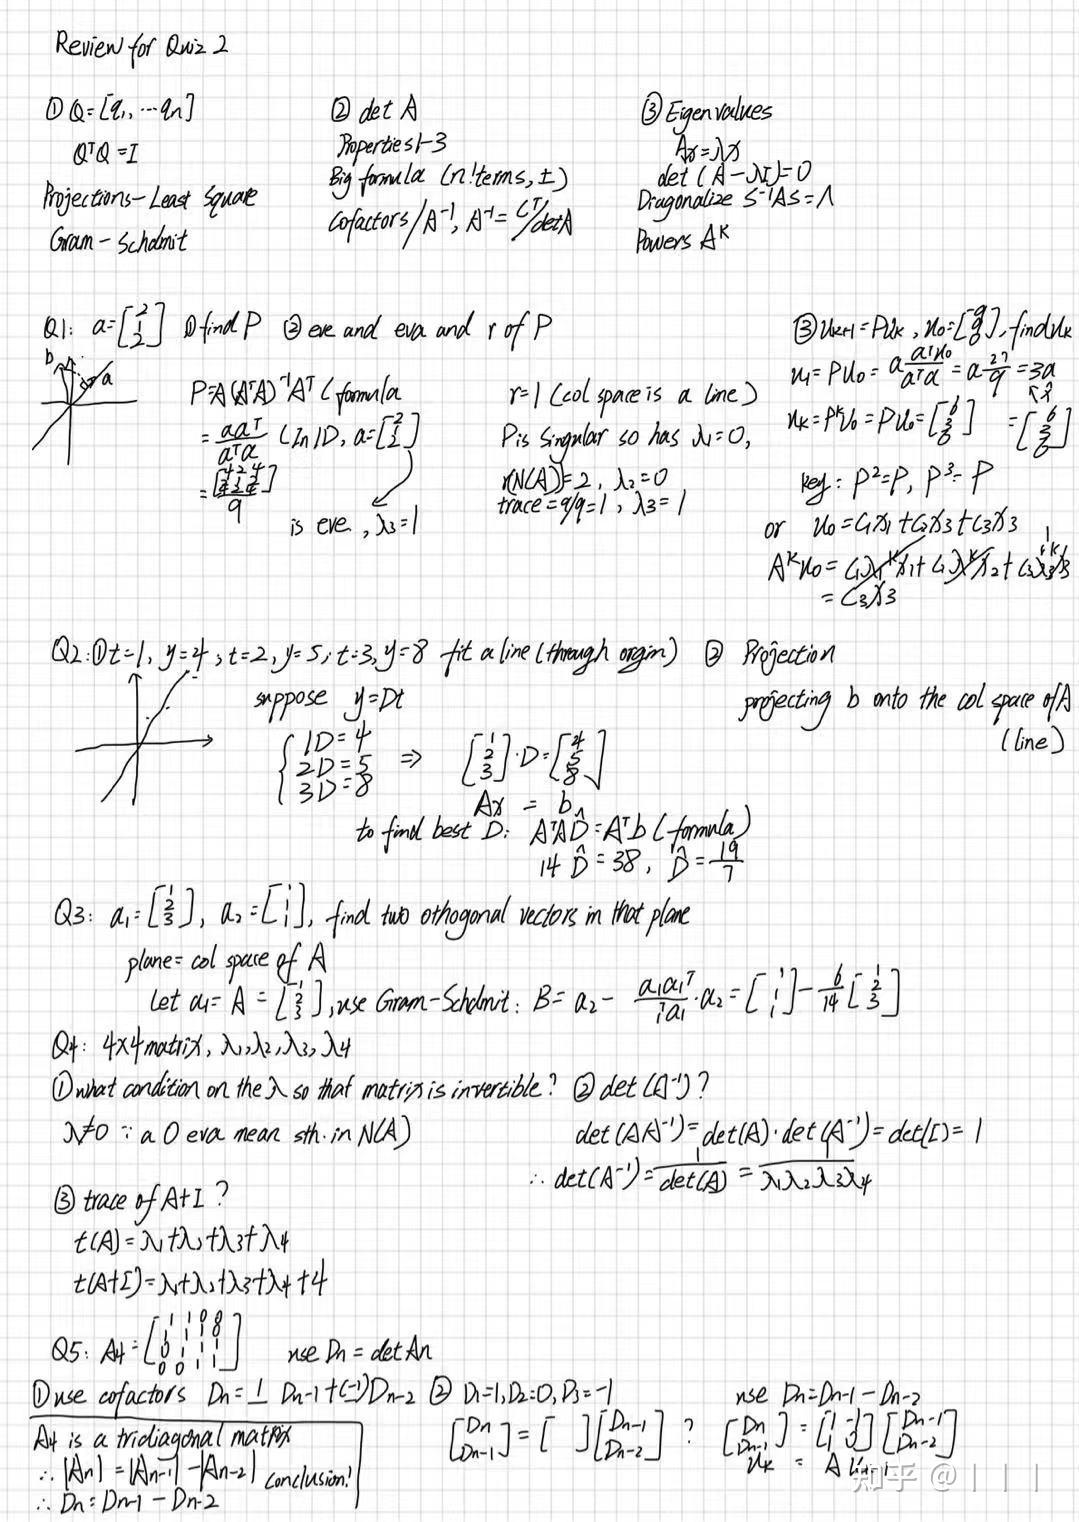 Review for Quiz 2
① Q=[q₁, ⋯ qn]
QᵀQ = I
Projections - Least Square
Gram - Schdmit
② det A
Properties 1-3
Big formula (n! terms, ±)
Cofactors / A⁻¹, A⁻¹ = Cᵀ/detA
③ Eigenvalues
Ax = λx
det (A - λI) = 0
Diagonalize S⁻¹AS = Λ
Powers Aᴷ
Q1: a = [2 1 2] ① find P ② eve and eva and r of P
b
a
P = A(AᵀA)⁻¹Aᵀ (formula
= aaᵀ/aᵀa (In 1D, a = [2 1 2]
9
is eve, λ3 = 1
r = 1 (col space is a line)
P is singular so has λ₁ = 0,
r(N(A)) = 2, λ₂ = 0
trace = 9/9 = 1, λ3 = 1
③ uk+1 = Puk, u₀ = [9 9 0], find uk
u₁ = Pu₀ = a aᵀu₀/aᵀa = a 27/9 = 3a
uk = Pᵏu₀ = Pu₀ = [6 3 6] = [6 3 6]
key: P² = P, P³ = P
or u₀ = c₁x₁ + c₂x₂ + c₃x₃
Aᴷu₀ = c₁λ₁ᴷx₁ + c₂λ₂ᴷx₂ + c₃λ₃ᴷx₃
= c₃x₃
Q2: ① t=1, y=4, t=2, y=5, t=3, y=8 fit a line (through orgin) ② Projection
suppose y = Dt
1D = 4
2D = 5
3D = 8
⇒ [1 2 3] · D = [4 5 8]
Ax = b
to find best D: AᵀAD̂ = Aᵀb (formula)
14 D̂ = 38, D̂ = 19/7
projecting b onto the col space of A
(line)
Q3: a₁ = [1 2 3], a₂ = [1 1 1], find two othogonal vectors in that plane
plane = col space of A
Let a₁ = A = [1 2 3], use Gram-Schdmit: B = a₂ - a₁a₁ᵀ/ᵀa₁ · a₂ = [1 1 1] - 6/14 [1 2 3]
Q4: 4x4 matrix, λ₁, λ₂, λ3, λ4
① what condition on the λ so that matrix is invertible? ② det (A⁻¹)?
λ≠0 ∵ a 0 eva mean sth. in N(A)
det (AA⁻¹) = det(A) · det (A⁻¹) = det(I) = 1
∴ det(A⁻¹) = 1/det(A) = 1/λ₁λ₂λ3λ4
③ trace of A+I?
t(A) = λ₁+λ₂+λ3+λ4
t(A+I) = λ₁+λ₂+λ3+λ4+4
Q5: A4 = [1 1 0 0 1 1 1 0 0 1 1 1 0 0 1 1] use Dn = det An
① use cofactors Dn = 1 Dn-1 + (-1)Dn-2 ② D₁=1, D₂=0, D3=-1
use Dn = Dn-1 - Dn-2
A4 is a tridiagonal matrix
∴ |An| = |An-1| - |An-2| conclusion!
∴ Dn = Dn-1 - Dn-2
[Dn Dn-1] = [ ] [Dn-1 Dn-2] ?
[Dn Dn-1] = [1 -1 1 0] [Dn-1 Dn-2]
uk = A
知乎 @丨丨丨